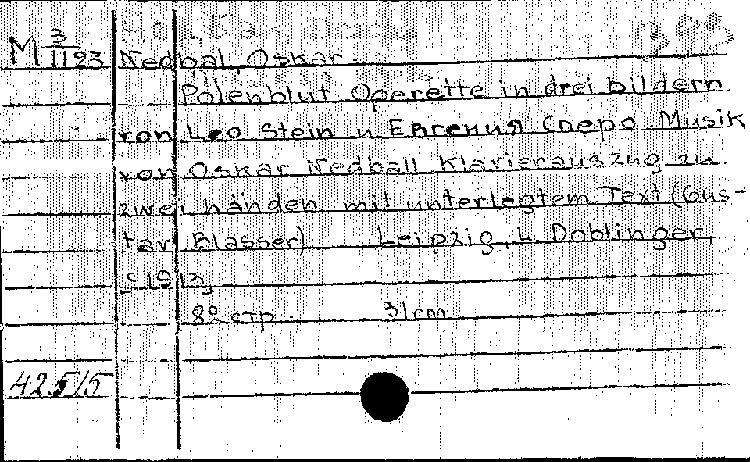 M 3/II93 Nedbal, Oskar
Polenblut Operette in drei bildern
von Leo Stein u Евгения Сперо Musik
von Oskar Nedball Klavierauszug zu
zwei händen mit unterlegtem Text (Gus-
tav Blasser) Leipzig, L. Doblinger,
c1913
82 стр 31cm
42515